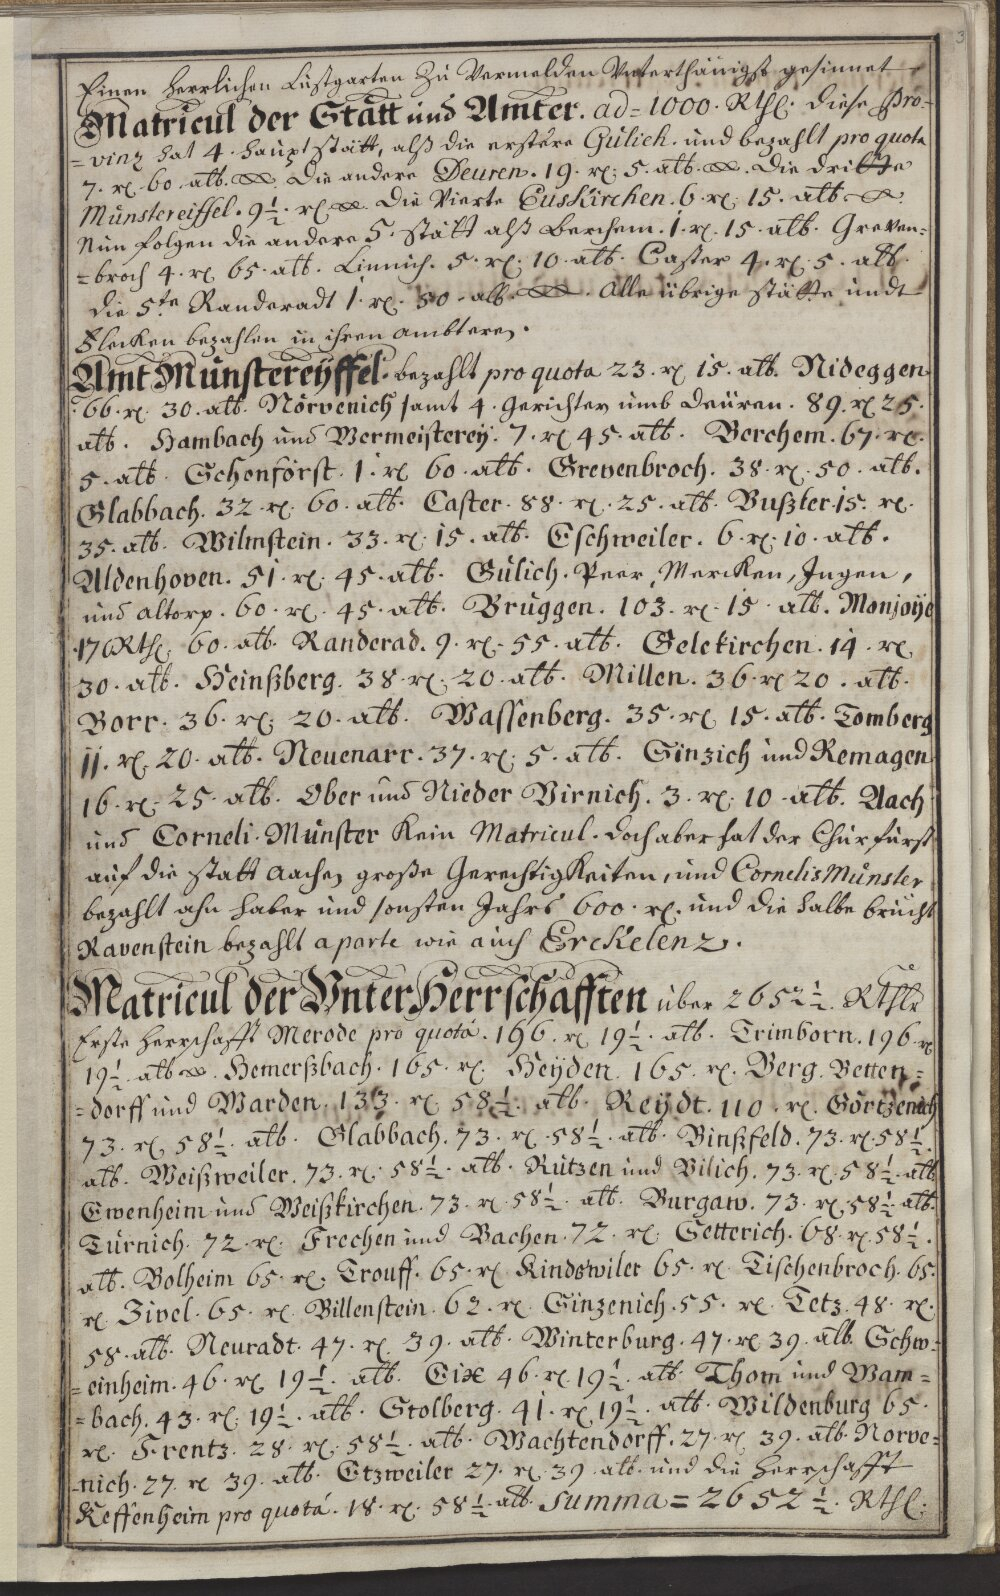 3
Einen herrlichen Lustgarten Zu Vermelden Unterthänigst gesinnet
Matricul der Statt und Ämter. ad = 1000. Rthl. diese Pro-
=vintz hat 4. haupt stätt, alß die erstere Gülich. und bezahlt pro quota
7. rl. 60. alb. Die andere Deuren. 19. rl: 5. alb. Die dritte
Münstereiffel. 9½. rl. Die Vierte Euskirchen. 6. rl: 15. alb.
Nun folgen die andere 5. Stätt alß Berchem. 1. rl. 15. alb. Greven=
=broch 4. rl 65. alb. Linnich. 5. rl: 10. alb. Caster 4. rl. 5. alb.
die 5.te Randeradt 1. rl. 50. alb. Alle übrige stätte undt
Flecken bezahlen in ihren ambteren.
Amt Münstereÿffel. bezahlt pro quota 23. rl 15. alb. Nideggen
66. rl. 30. alb. Nörvenich samt 4. gerichter umb deüren. 89. rl 25.
alb. Hambach und Wermeisterey. 7. rl 45. alb. Berchem. 67. rl.
5. alb. Schonforst. 1. rl 60. alb. Grevenbroch. 38. rl. 50. alb.
Glabbach. 32. rl. 60. alb. Caster. 88. rl. 25. alb. Bußler. 15. rl.
35. alb. Wilmstein. 33. rl: 15. alb. Eschweiler. 6. rl: 10. alb.
Aldenhoven. 51. rl: 45. alb. Gülich. Peer, Mercken, Ingen,
und altorp. 60. rl. 45. alb. Brüggen. 103. rl. 15. alb. Monjoÿe
17 Rthl: 60. alb. Randerad. 9. rl. 55. alb. Gelekirchen. 14. rl.
30. alb. Heinßberg. 38. rl. 20. alb. Millen. 36. rl 20. alb.
Borr. 36. rl: 20. alb. Wassenberg. 35. rl 15. alb. Tomberg
11. rl. 20. alb. Neuenarr. 37. rl: 5. alb. Sinzich und Remagen
16. rl: 25. alb. Ober und Nieder Virnich. 3. rl: 10. alb. Aach
und Corneli. Münster Kein Matricul. doch aber hat der Churfürst
auf die statt Aachen große Gerechtigkeiten, und Cornelis Münster
bezahlt ahn haber und sonsten Jahrs 600. rl. und die halbe brücht
Ravenstein bezahlt aparte wie auch Erckelenz.
Matricul der Unter Herrschafften über 2652½. Rthlr
Erste Herrschafft Merode pro quotá. 196. rl 19½. alb. Trimborn. 196. rl
19½. alb. Hemerßbach. 165. rl. Heÿden. 165. rl. Berg. Betten=
=dorff und Warden. 133. rl. 58½. alb. Reÿdt. 110. rl. Görtzenich
73. rl. 58½. alb. Glabbach. 73. rl. 58½. alb. Binßfeld. 73. rl. 58½.
alb. Weißweiler. 73. rl. 58½. alb. Rützen und Vilich. 73. rl. 58½. alb
Ewenheim und Weißkirchen. 73. rl. 58½. alb. Burgaw. 73. rl. 58½. alb.
Türnich. 72. rl. Frechen und Bachen. 72. rl. Setterich. 68. rl. 58½.
alb. Bolheim 65. rl. Trouff. 65. rl Kindswiler 65. rl. Tischenbroch. 65.
rl. Zivel. 65. rl. Billenstein. 62. rl. Ginzenich. 55. rl. Tetz. 48. rl.
58. alb. Neuradt. 47. rl. 39. alb. Winterburg. 47. rl 39. alb. Schw=
=einheim. 46. rl. 19½. alb. Eix 46. rl. 19½. alb. Thom und Wam=
=bach. 43. rl: 19½. alb. Stolberg. 41. rl 19½. alb. Wildenburg 65.
rl. Frentz. 28. rl. 58½. alb. Wachtendorff. 27. rl 39. alb. Norve=
=nich. 27. rl 39. alb. Etzweiler 27. rl. 39. alb. und die Herrschafft
Keffenheim pro quotá. 18. rl. 58½. alb. Summa = 2652½. Rthl: